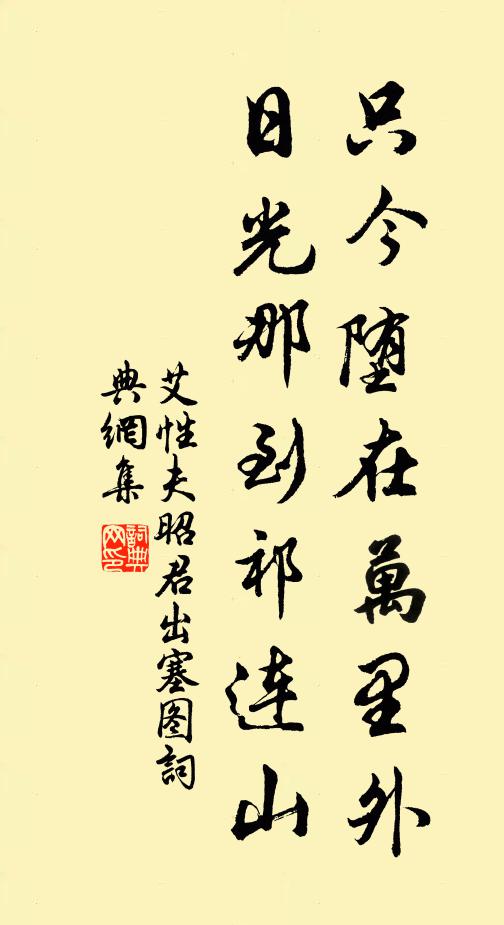 只今堕在萬里外
日光那到祁連山
艾性夫昭君出塞图詞
典網集
詞典
网印